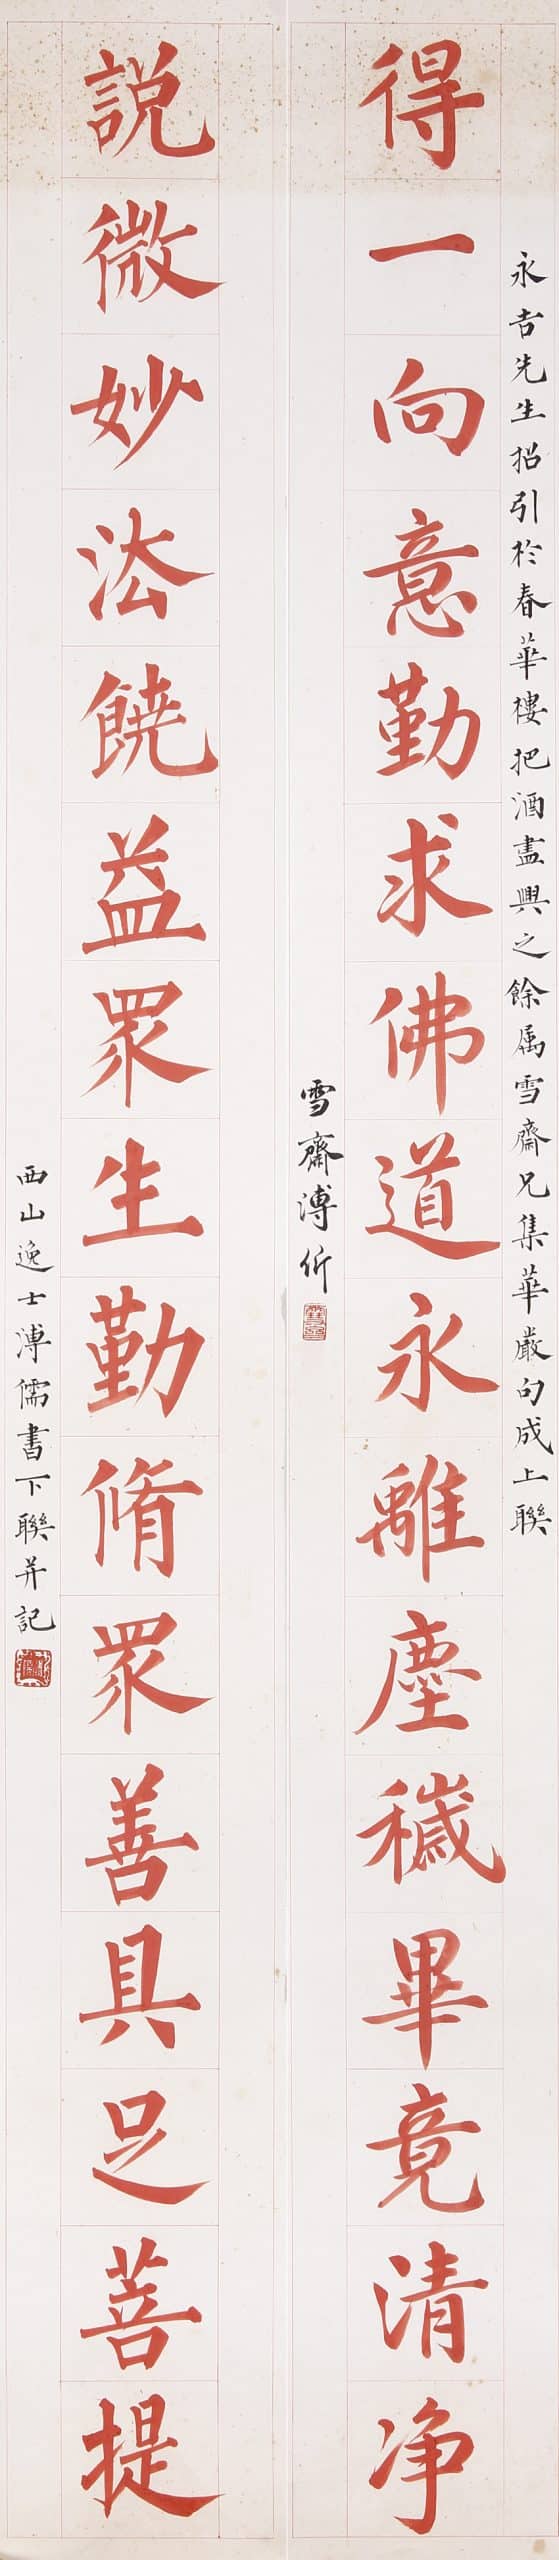 永吉先生招引於春華樓把酒盡興之餘属雪齋兄集華嚴句成上聯
得一向意勤求佛道永離塵穢畢竟清净
雪齋溥伒
説微妙法饒益眾生勤脩眾善具足菩提
西山逸士溥儒書下聯并記